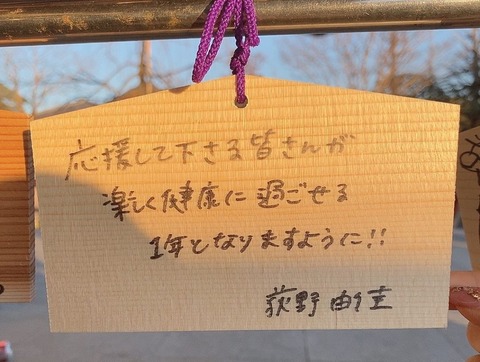 応援して下さる皆さんが
楽しく健康に過ごせる
1年となりますように!!
荻野由佳